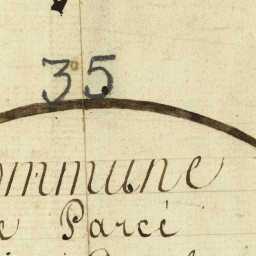 35
ommune
e Parcé